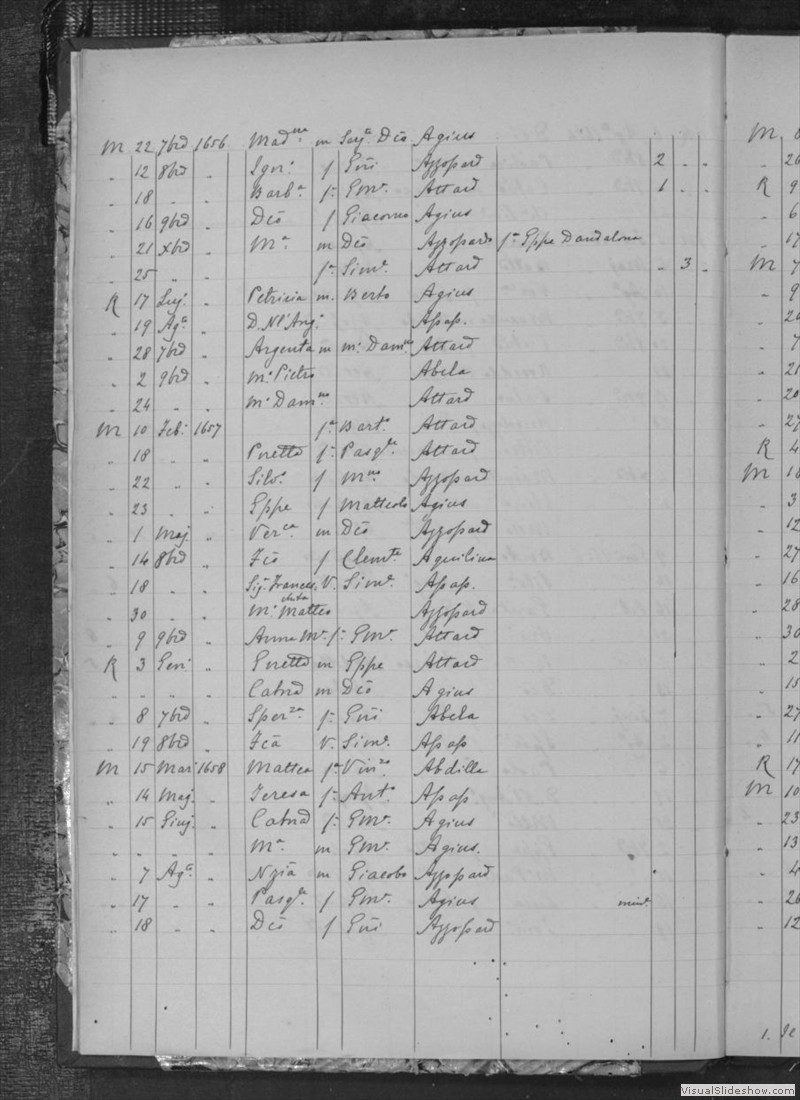 M 22 7bre 1656 Mad.na m Sarj.a Dēō Agius
" 12 8bre " Igna. f Gūi Azzopard 2 . .
" 18 " " Barb.a f. Gmr. Attard 1 . .
" 16 9bre " Dēō f Giacomo Agius
" 21 Xbre " M.a m Dēō Azzopardo f.a Gppe Dandalona
" 25 f.a Sim.e Attard " 3 .
R 17 Lug. " Petricia m. Berto Agius
" 19 Ag.o " D. Nl'Ang.o Apap.
" 28 7bre " Argenta m m.o Dom.co Attard
" 2 9bre " M.o Pietro Abela
" 24 " " M.o Dom.co Attard
M 10 Feb. 1657 f.a Bart.o Attard
" 18 " " f. Pasq.le Attard
" 22 " " Silv.o f M.no Azzopard
" 23 " " Gppe f Matteolo Agius
" 1 Maj " Ver.ca m Dēō Azzopard
" 14 8bre " f Clem.te Aquilina
" 18 " " Sig. Frances. V. Sim.e Apap.
" 30 " M.o Matteo Azzopard
" 9 9bre " Anna M.a f. Gmr. Attard
R 3 Gen. " m Gppe Attard
" " " " Catna m Dēō Agius
" 8 7bre " Sper.za f. Gūi Abela
" 19 8bre " V. Sim.e Apap
M 15 Mar 1658 Mattea f.a Vin.zo Abdilla
" 14 Maj. " Teresa f. Ant.o Apap
" 15 Giug. " Catna f. Gmr. Agius
" " " " M.a m Gmr. Agius.
" 7 Ag.o " Ngia m Giacobo Azzopard
" 17 " " Pasq.le f Gmr. Agius
" 18 " " Dēō f Gūi Azzopard
M 8
" 26
R 9
" 6
" 17
M 7
" 9
" 20
" 7
" 21
" 20
" 27
R 4
M 10
" 3
" 12
" 27
" 16
" 28
" 30
" 2
" 15
" 27
" 11
R 17
M 10
" 23
" 13
" 4
" 26
" 12
VisualSlideshow.com